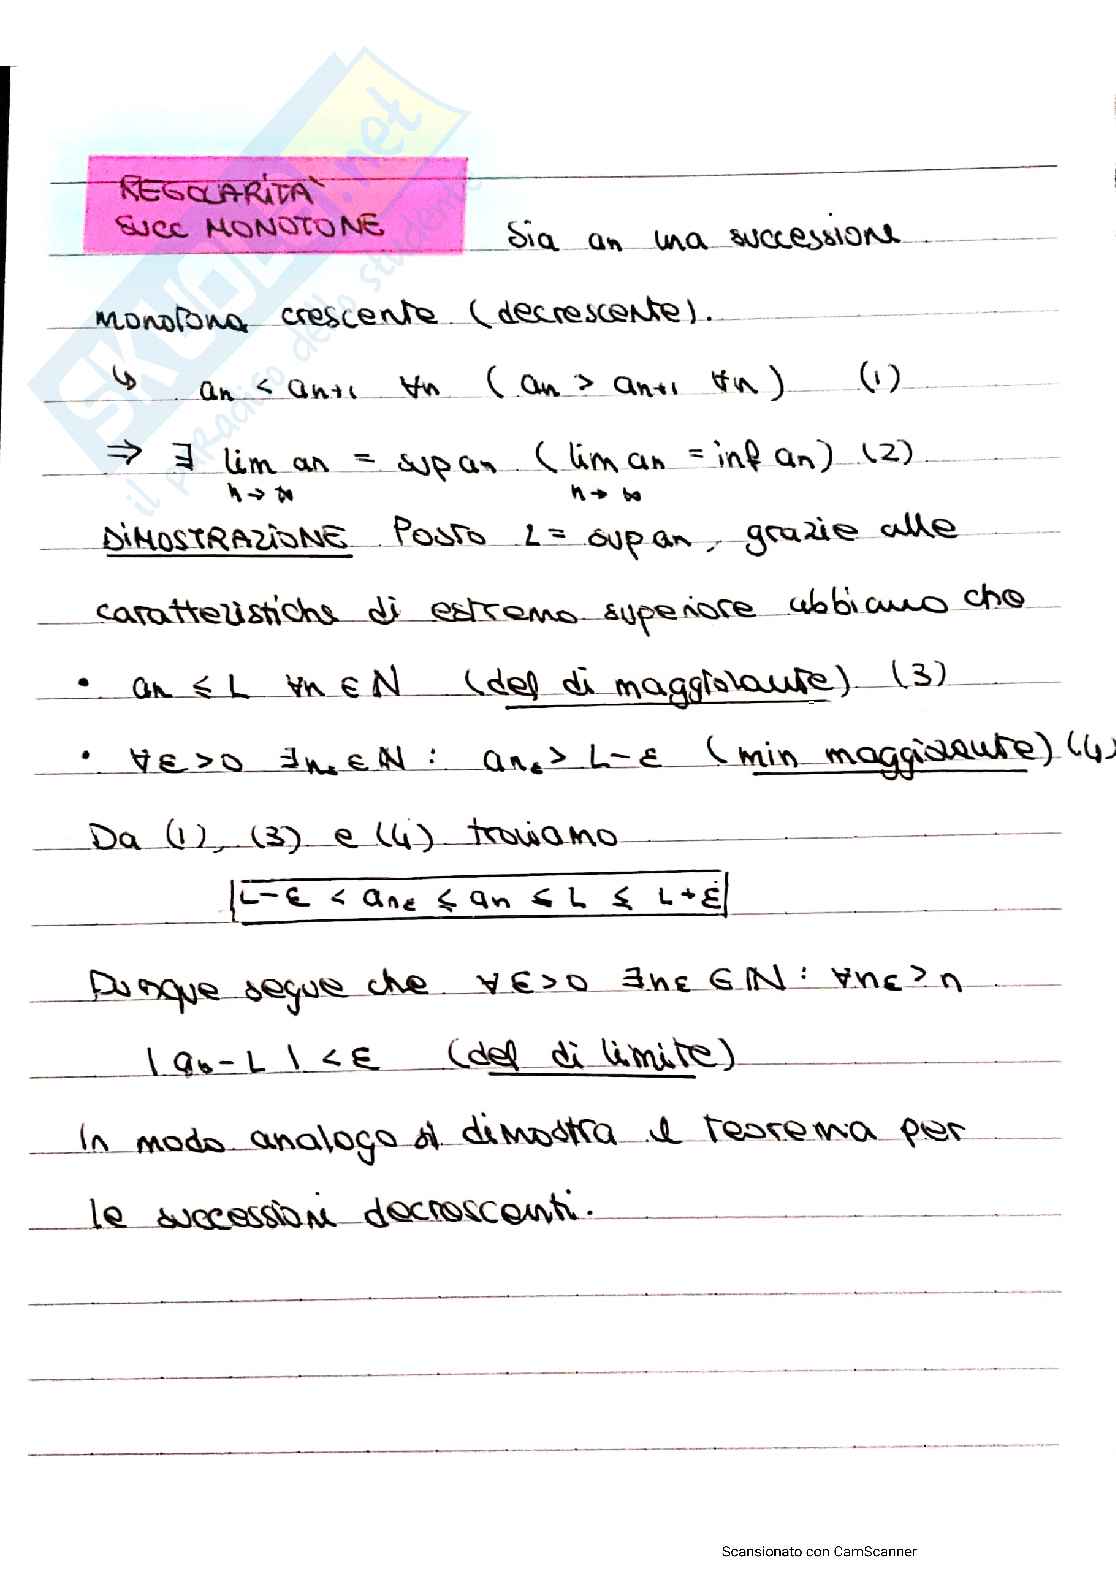 REGOLARITÀ
SUCC MONOTONE
Sia an una successione
monotona crescente (decrescente).
↳ an < an+1 ∀n (an > an+1 ∀n) (1)
⇒ ∃ lim an = sup an (lim an = inf an) (2)
n→∞ n→∞
DIMOSTRAZIONE Posto L = sup an, grazie alle
caratteristiche di estremo superiore abbiamo che
• an ≤ L ∀n ∈ N (def di maggiorante) (3)
• ∀ε>0 ∃nε ∈ N : anε > L-ε (min maggiorante) (4)
Da (1), (3) e (4) troviamo
L-ε < anε ≤ an ≤ L ≤ L+ε
Dunque segue che ∀ε>0 ∃nε ∈ N : ∀nε > n
|an - L| < ε (def di limite)
In modo analogo si dimostra il teorema per
le successioni decrescenti.
SKUOLA.net
il paradiso dello studente
Scansionato con CamScanner